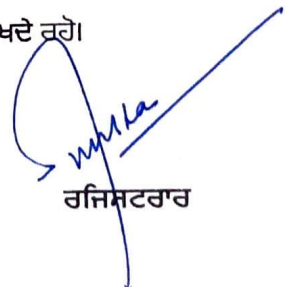 ਖਦੇ ਰਹੋ।
ਰਜਿਸਟਰਾਰ